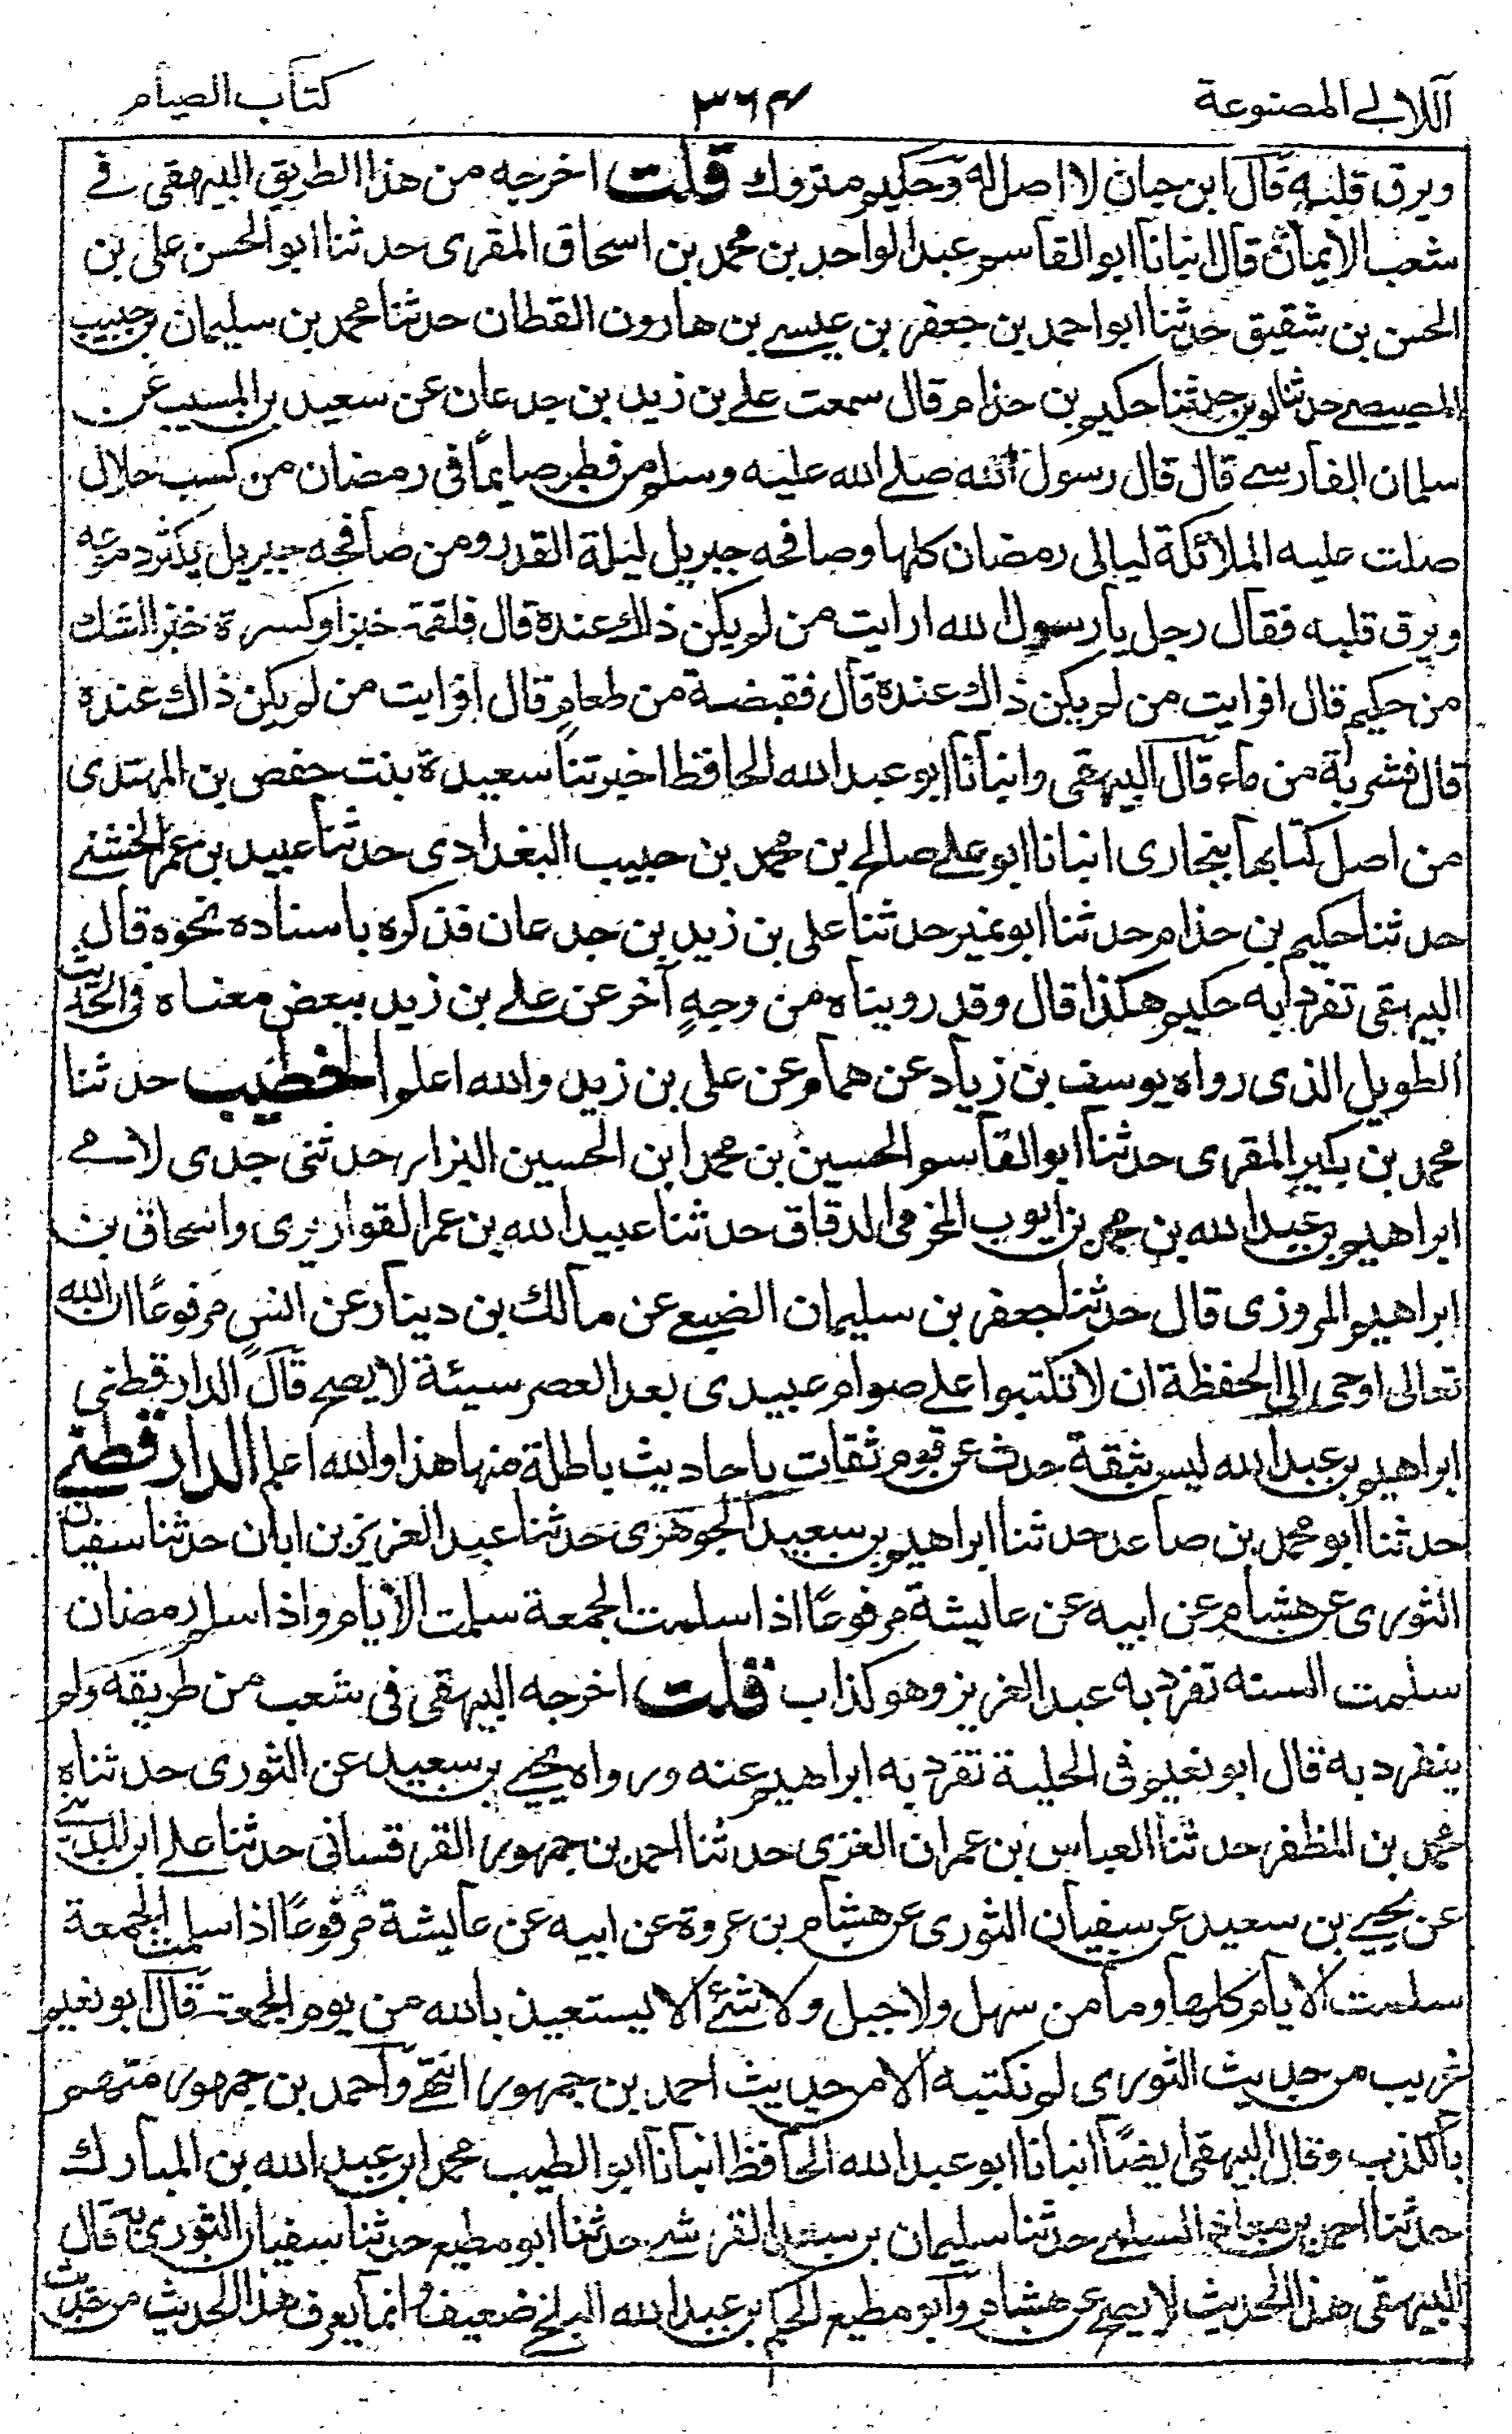 اللآلي المصنوعة ٣٦٤ كتاب الصيام
ويرق قلبه قال ابن حبان لا اصل له وحكيم متروك قلت اخرجه من هذا الطريق البيهقى في
شعب الايمان قال انبانا ابو القاسم عبد الواحد بن محمد بن اسحاق المقرى حدثنا ابو الحسن على بن
الحسن بن شقيق حدثنا ابو احمد بن جعفر بن عيسے بن هارون القطان حدثنا محمد بن سليمان بن حبيب
المصيصے حدثنا لوين حدثنا حكيم بن حذام قال سمعت علے بن زيد بن جدعان عن سعيد بن المسيب عن
سلمان الفارسے قال قال رسول الله صلے الله عليه وسلم من فطر صايماً في رمضان من كسب حلال
صلت عليه الملائكة ليالى رمضان كلها وصافحه جبريل ليلة القدر ومن صافحه جبريل يكثر دموعه
ويرق قلبه فقال رجل يا رسول الله ارايت من لم يكن ذلك عنده قال فلقمة خبز او كسرة خبز الشك
من حكيم قال افرايت من لم يكن ذاك عنده قال فقبضة من طعامٍ قال افرايت من لم يكن ذاك عنده
قال فشربة من ماء قال البيهقى وانبانا ابو عبد الله الحافظ اخبرتنا سعيدة بنت حفص بن المهتدى
من اصل كتابها ببخارى انبانا ابو علے صالح بن محمد بن حبيب البغدادى حدثنا عبيد بن عمر الخشنے
حدثنا حكيم بن حذام حدثنا ابو عمير حدثنا على بن زيد بن جدعان فذكره باسناده نحوه قال
البيهقى تفرد به حكيم هكذا قال وقد رويناه من وجهٍ آخر عن علے بن زيد ببعض معناه فى الحديث
الطويل الذى رواه يوسف بن زياد عن همام عن على بن زيد والله اعلم الخطيب حدثنا
محمد بن بكير المقرى حدثنا ابو القاسم الحسين بن محمد ابن الحسين البزار حدثنى جدى لامے
ابراهيم بن عبد الله بن محمد بن ايوب المخرمى الدقاق حدثنا عبيد الله بن عمر القواريرى واسحاق بن
ابراهيم المروزى قال حدثنا جعفر بن سليمان الضبعے عن مالك بن دينار عن انسٍ مرفوعًا ان الله
تعالى اوحى الى الحفظة ان لا تكتبوا علے صوام عبيدى بعد العصر سيئة لا يصح قال الدارقطنى
ابراهيم بن عبد الله ليس بثقة حدث عن قوم ثقات باحاديث باطلة منها هذا والله اعلم الدارقطنے
حدثنا ابو محمد بن صاعد حدثنا ابراهيم بن سعيد الجوهرى حدثنا عبد العزيز بن ابان حدثنا سفيان
الثورى عن هشام عن ابيه عن عايشة مرفوعًا اذا سلمت الجمعة سلمت الايام واذا سلم رمضان
سلمت السنه تفرد به عبد العزيز وهو كذاب قلت اخرجه البيهقى فى شعب من طريقه ولم
ينفرد به قال ابو نعيم فى الحلية تفرد به ابراهيم عنه ورواه يحيے بن سعيد عن الثورى حدثناه
محمد بن المظفر حدثنا العباس بن عمران الغزى حدثنا احمد بن جمهور القرقسانى حدثنا علے ابن المدينے
عن يحيے بن سعيد عن سفيان الثورى عن هشام بن عروة عن ابيه عن عايشة مرفوعًا اذا سلمت الجمعة
سلمت الايام كلها وما من سهل ولا جبل ولا شئ الا يستعيذ بالله من يوم الجمعة قال ابو نعيم
غريب من حديث الثورى لم نكتبه الا من حديث احمد بن جمهور انتهے واحمد بن جمهور متهم
بالكذب وقال البيهقى ايضًا انبانا ابو عبد الله الحافظ انبانا ابو الطيب محمد ابن عبد الله بن المبارك
حدثنا احمد بن معاذ السلمے حدثنا سليمان بن سعد القرشے حدثنا ابو مطيع حدثنا سفيان الثورى به قال
البيهقى هذا الحديث لا يصح عن هشام وابو مطيع الحكم بن عبد الله البلخے ضعيف وانما يعرف هذا الحديث من حديث